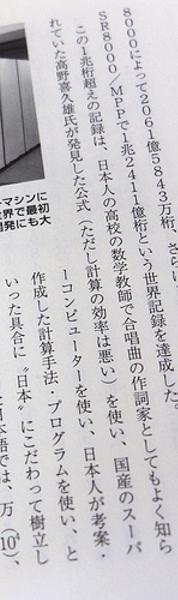 8000によって2061億5843万桁、さらに
SR8000/MPPで1兆2411億桁という世界記録を達成した。
この1兆桁超えの記録は、日本人の高校の数学教師で合唱曲の作詞家としてもよく知ら
れていた高野喜久雄氏が発見した公式（ただし計算の効率は悪い）を使い、国産のスーパ
ーコンピューターを使い、日本人が考案・
作成した計算手法・プログラムを使い、と
いった具合に〝日本〟にこだわって樹立し
日本語では、万（10⁴、
ーマシンに
世界で最初
開発にも大